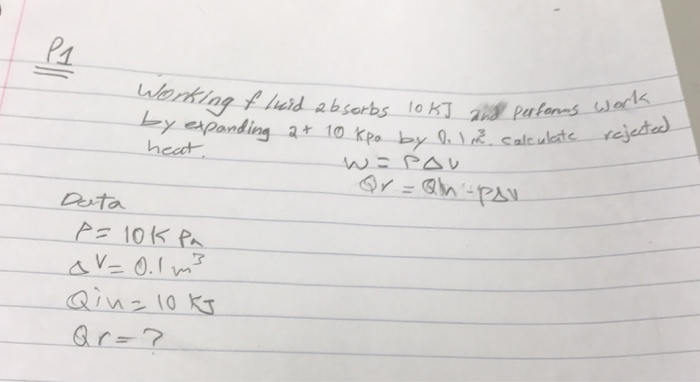 P1
Working fluid absorbs 10 KJ and performs work
by expanding at 10 Kpa by 0.1 m³. calculate rejected
heat.
W = PΔV
Qr = Qin - PΔV
Data
P = 10K Pa
ΔV = 0.1 m³
Qin = 10 KJ
Qr = ?